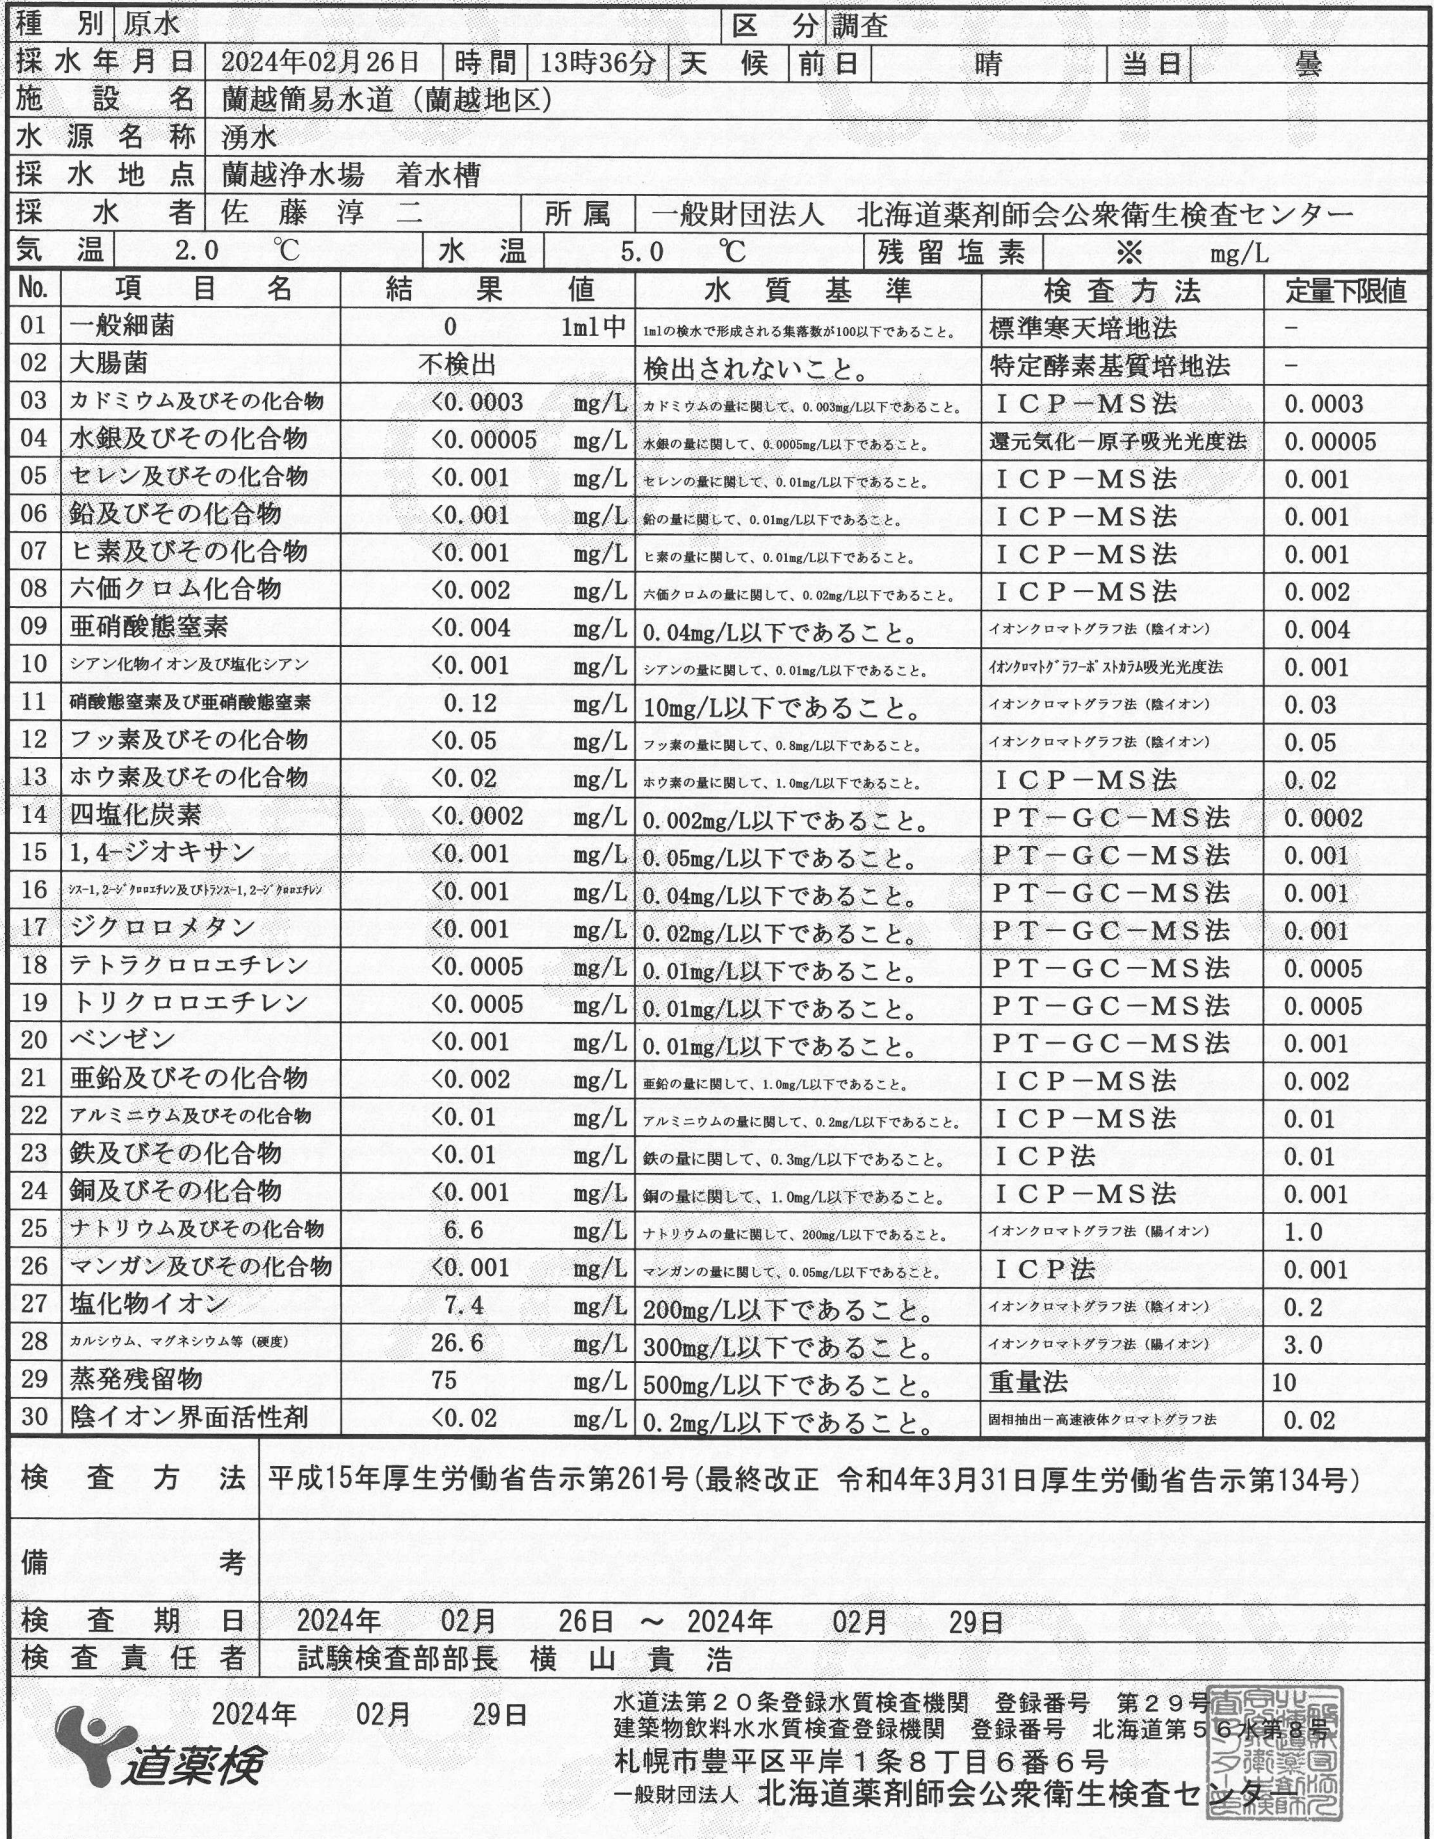 種別 原水 区分 調査
採水年月日 2024年02月26日 時間 13時36分 天候 前日 晴 当日 曇
施設名 蘭越簡易水道（蘭越地区）
水源名称 湧水
採水地点 蘭越浄水場 着水槽
採水者 佐藤淳二 所属 一般財団法人 北海道薬剤師会公衆衛生検査センター
気温 2.0 ℃ 水温 5.0 ℃ 残留塩素 ※ mg/L
No. 項目名 結果値 水質基準 検査方法 定量下限値
01 一般細菌 0 1ml中 1mlの検水で形成される集落数が100以下であること。 標準寒天培地法 −
02 大腸菌 不検出 検出されないこと。 特定酵素基質培地法 −
03 カドミウム及びその化合物 <0.0003 mg/L カドミウムの量に関して、0.003mg/L以下であること。 ＩＣＰ−ＭＳ法 0.0003
04 水銀及びその化合物 <0.00005 mg/L 水銀の量に関して、0.0005mg/L以下であること。 還元気化−原子吸光光度法 0.00005
05 セレン及びその化合物 <0.001 mg/L セレンの量に関して、0.01mg/L以下であること。 ＩＣＰ−ＭＳ法 0.001
06 鉛及びその化合物 <0.001 mg/L 鉛の量に関して、0.01mg/L以下であること。 ＩＣＰ−ＭＳ法 0.001
07 ヒ素及びその化合物 <0.001 mg/L ヒ素の量に関して、0.01mg/L以下であること。 ＩＣＰ−ＭＳ法 0.001
08 六価クロム化合物 <0.002 mg/L 六価クロムの量に関して、0.02mg/L以下であること。 ＩＣＰ−ＭＳ法 0.002
09 亜硝酸態窒素 <0.004 mg/L 0.04mg/L以下であること。 イオンクロマトグラフ法（陰イオン） 0.004
10 シアン化物イオン及び塩化シアン <0.001 mg/L シアンの量に関して、0.01mg/L以下であること。 ｲｵﾝｸﾛﾏﾄｸﾞﾗﾌ-ﾎﾟｽﾄｶﾗﾑ吸光光度法 0.001
11 硝酸態窒素及び亜硝酸態窒素 0.12 mg/L 10mg/L以下であること。 イオンクロマトグラフ法（陰イオン） 0.03
12 フッ素及びその化合物 <0.05 mg/L フッ素の量に関して、0.8mg/L以下であること。 イオンクロマトグラフ法（陰イオン） 0.05
13 ホウ素及びその化合物 <0.02 mg/L ホウ素の量に関して、1.0mg/L以下であること。 ＩＣＰ−ＭＳ法 0.02
14 四塩化炭素 <0.0002 mg/L 0.002mg/L以下であること。 ＰＴ−ＧＣ−ＭＳ法 0.0002
15 1,4-ジオキサン <0.001 mg/L 0.05mg/L以下であること。 ＰＴ−ＧＣ−ＭＳ法 0.001
16 ｼｽ-1,2-ｼﾞｸﾛﾛｴﾁﾚﾝ及びﾄﾗﾝｽ-1,2-ｼﾞｸﾛﾛｴﾁﾚﾝ <0.001 mg/L 0.04mg/L以下であること。 ＰＴ−ＧＣ−ＭＳ法 0.001
17 ジクロロメタン <0.001 mg/L 0.02mg/L以下であること。 ＰＴ−ＧＣ−ＭＳ法 0.001
18 テトラクロロエチレン <0.0005 mg/L 0.01mg/L以下であること。 ＰＴ−ＧＣ−ＭＳ法 0.0005
19 トリクロロエチレン <0.0005 mg/L 0.01mg/L以下であること。 ＰＴ−ＧＣ−ＭＳ法 0.0005
20 ベンゼン <0.001 mg/L 0.01mg/L以下であること。 ＰＴ−ＧＣ−ＭＳ法 0.001
21 亜鉛及びその化合物 <0.002 mg/L 亜鉛の量に関して、1.0mg/L以下であること。 ＩＣＰ−ＭＳ法 0.002
22 アルミニウム及びその化合物 <0.01 mg/L アルミニウムの量に関して、0.2mg/L以下であること。 ＩＣＰ−ＭＳ法 0.01
23 鉄及びその化合物 <0.01 mg/L 鉄の量に関して、0.3mg/L以下であること。 ＩＣＰ法 0.01
24 銅及びその化合物 <0.001 mg/L 銅の量に関して、1.0mg/L以下であること。 ＩＣＰ−ＭＳ法 0.001
25 ナトリウム及びその化合物 6.6 mg/L ナトリウムの量に関して、200mg/L以下であること。 イオンクロマトグラフ法（陽イオン） 1.0
26 マンガン及びその化合物 <0.001 mg/L マンガンの量に関して、0.05mg/L以下であること。 ＩＣＰ法 0.001
27 塩化物イオン 7.4 mg/L 200mg/L以下であること。 イオンクロマトグラフ法（陰イオン） 0.2
28 カルシウム、マグネシウム等（硬度） 26.6 mg/L 300mg/L以下であること。 イオンクロマトグラフ法（陽イオン） 3.0
29 蒸発残留物 75 mg/L 500mg/L以下であること。 重量法 10
30 陰イオン界面活性剤 <0.02 mg/L 0.2mg/L以下であること。 固相抽出−高速液体クロマトグラフ法 0.02
検査方法 平成15年厚生労働省告示第261号(最終改正 令和4年3月31日厚生労働省告示第134号)
備考
検査期日 2024年 02月 26日 ～ 2024年 02月 29日
検査責任者 試験検査部部長 横山貴浩
2024年 02月 29日
道薬検
水道法第２０条登録水質検査機関 登録番号 第２９号
建築物飲料水水質検査登録機関 登録番号 北海道第５６水第８号
札幌市豊平区平岸１条８丁目６番６号
一般財団法人 北海道薬剤師会公衆衛生検査センター